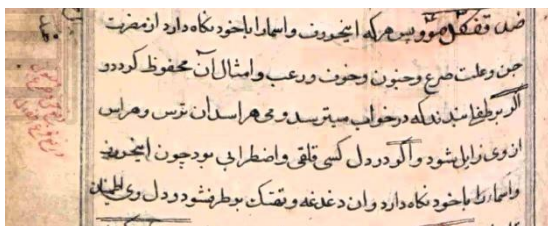 پس هرکه این حروف و اسما را با خود نگاه دارد از مضرت
جن و علت صرع و جنون و خوف و رعب و امثال آن محفوظ کردد و
اکر بر طفل بندند که در خواب میترسد و می هراسد آن ترس و هراس
از وی زایل شود و اکر در دل کسی قلقی و اضطرابی بود چون این حروف
و اسما را با خود نکاه دارد آن دغدغه و تفتک برطرف شود و دل وی